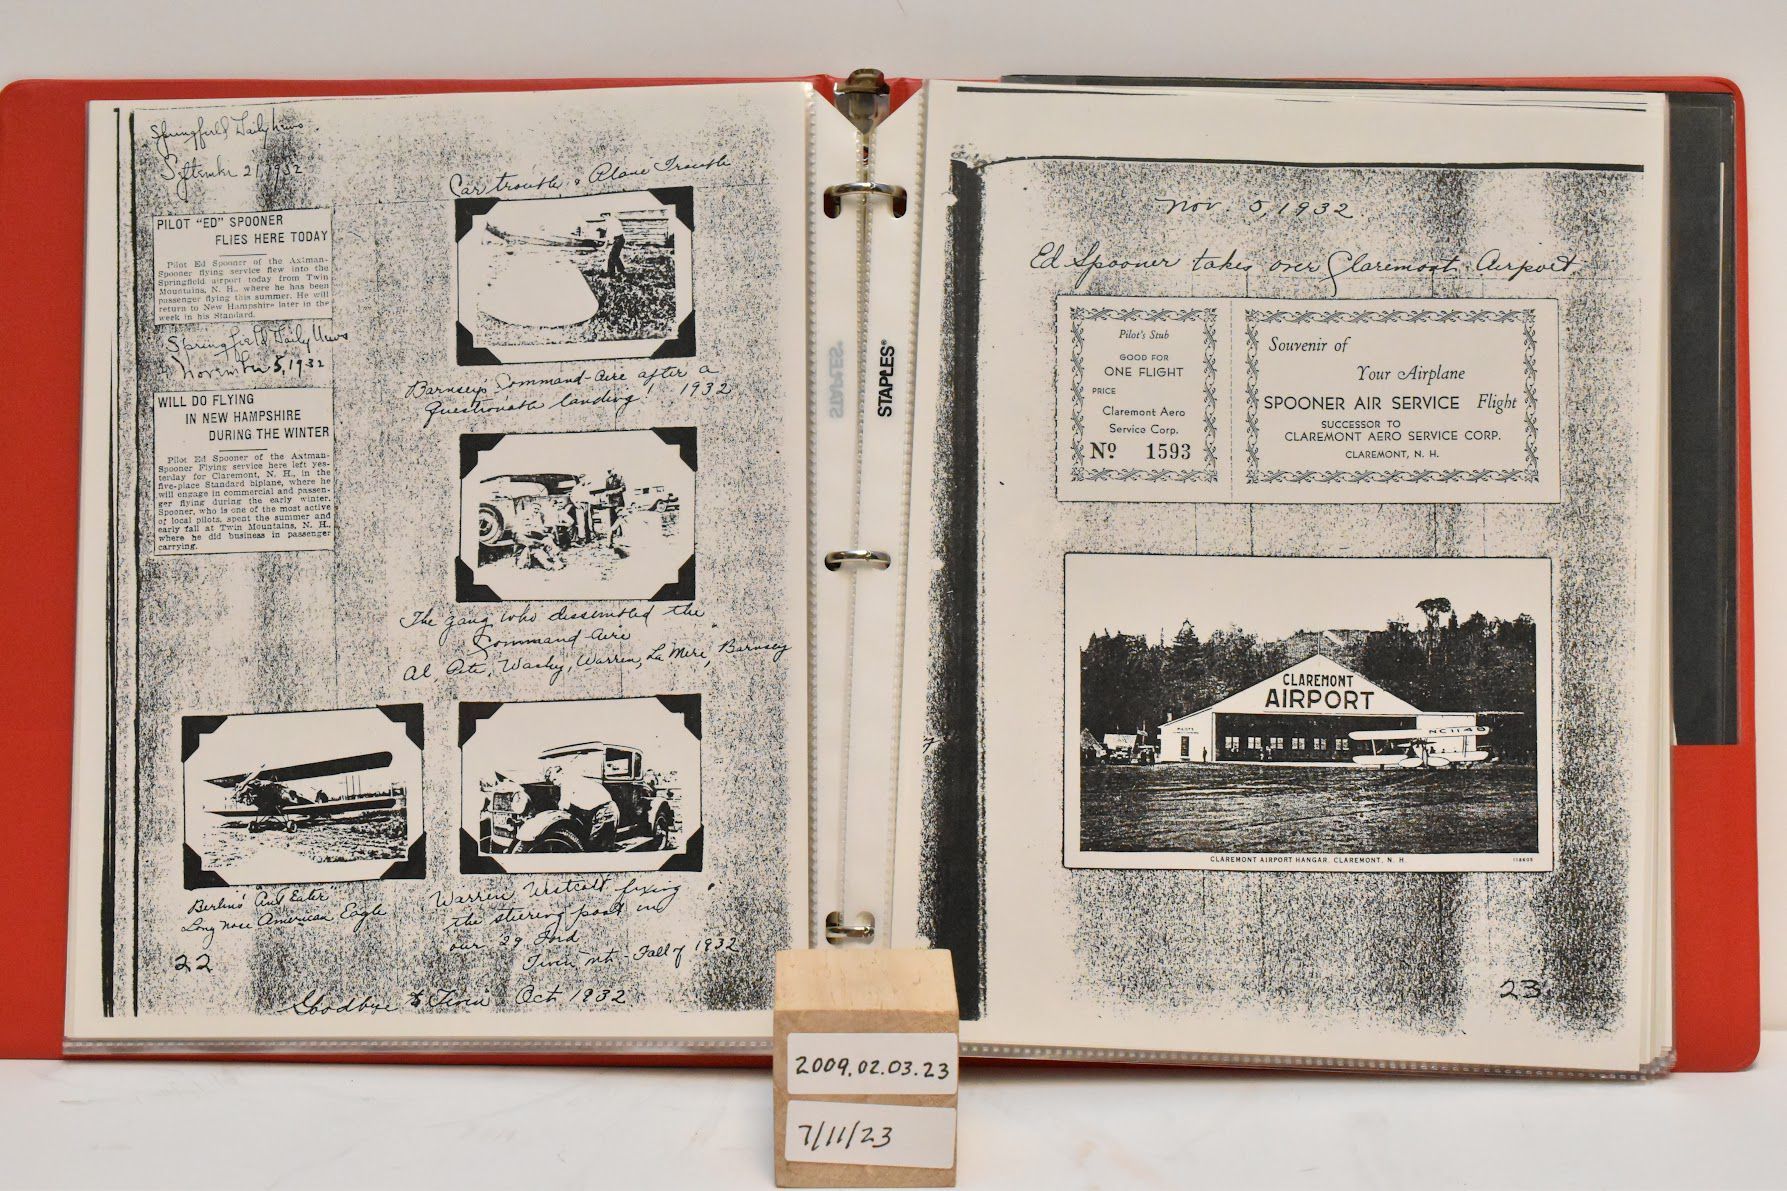 Springfield Daily News
September 21, 1932
PILOT "ED" SPOONER
FLIES HERE TODAY
Pilot Ed Spooner of the Axtman-
Spooner flying service flew into the
Springfield airport today from Twin
Mountains, N. H., where he has been
passenger flying this summer. He will
return to New Hampshire later in the
week in his Standard.
Springfield Daily News
November 5, 1932
WILL DO FLYING
IN NEW HAMPSHIRE
DURING THE WINTER
Pilot Ed Spooner of the Axtman-
Spooner Flying service here left yes-
terday for Claremont, N. H., in the
five-place Standard biplane, where he
will engage in commercial and passen-
ger flying during the early winter.
Spooner, who is one of the most active
of local pilots, spent the summer and
early fall at Twin Mountains, N. H.,
where he did business in passenger
carrying.
Car trouble & Plane Trouble
Barnsey's Command-Aire after a
Questionable landing! 1932
The gang who dissembled the
Command Aire
Al, Pete, Washy, Warren, La Mere, Barnsey
Berlins' "Ant Eater"
Long nose American Eagle
Warren Westcott fixing
the steering post in
our '29 Ford
Twin Mt - Fall of 1932
22
Goodbye to Twin Oct 1932
STAPLES®
STAPLES®
Nov. 5, 1932
Ed Spooner takes over Claremont Airport
Pilot's Stub
GOOD FOR
ONE FLIGHT
PRICE
Claremont Aero
Service Corp.
Nº 1593
Souvenir of
Your Airplane
SPOONER AIR SERVICE Flight
SUCCESSOR TO
CLAREMONT AERO SERVICE CORP.
CLAREMONT, N. H.
CLAREMONT
AIRPORT
PILOTS
NC1149
CLAREMONT AIRPORT HANGAR, CLAREMONT, N. H.
118605
23
2009.02.03.23
7/11/23